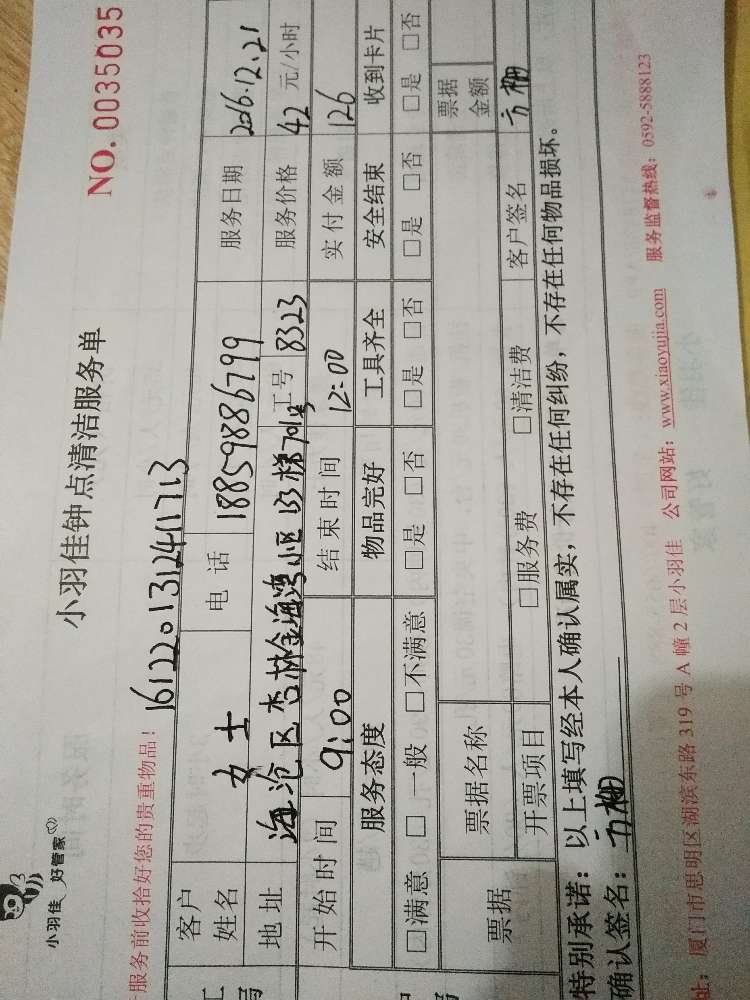 小羽佳 好管家
小羽佳钟点清洁服务单
NO. 0035035
服务前收拾好您的贵重物品!
1612201312411713
客户姓名 女士 电话 18859886799 服务日期 2016.12.21
地址 海沧区杏林金海湾小区 梯701 工号 8323 服务价格 42 元/小时
开始时间 9:00 结束时间 12:00 实付金额 126
服务态度 物品完好 工具齐全 安全结束 收到卡片
□满意 □一般 □不满意 □是 □否 □是 □否 □是 □否 □是 □否
票据 票据名称 票据金额
开票项目 □服务费 □清洁费 客户签名 方栅
特别承诺:以上填写经本人确认属实,不存在任何纠纷,不存在任何物品损坏。
确认签名: 方栅
址:厦门市思明区湖滨东路 319 号 A 幢 2 层小羽佳 公司网站:www.xiaoyujia.com 服务监督热线:0592-5888123